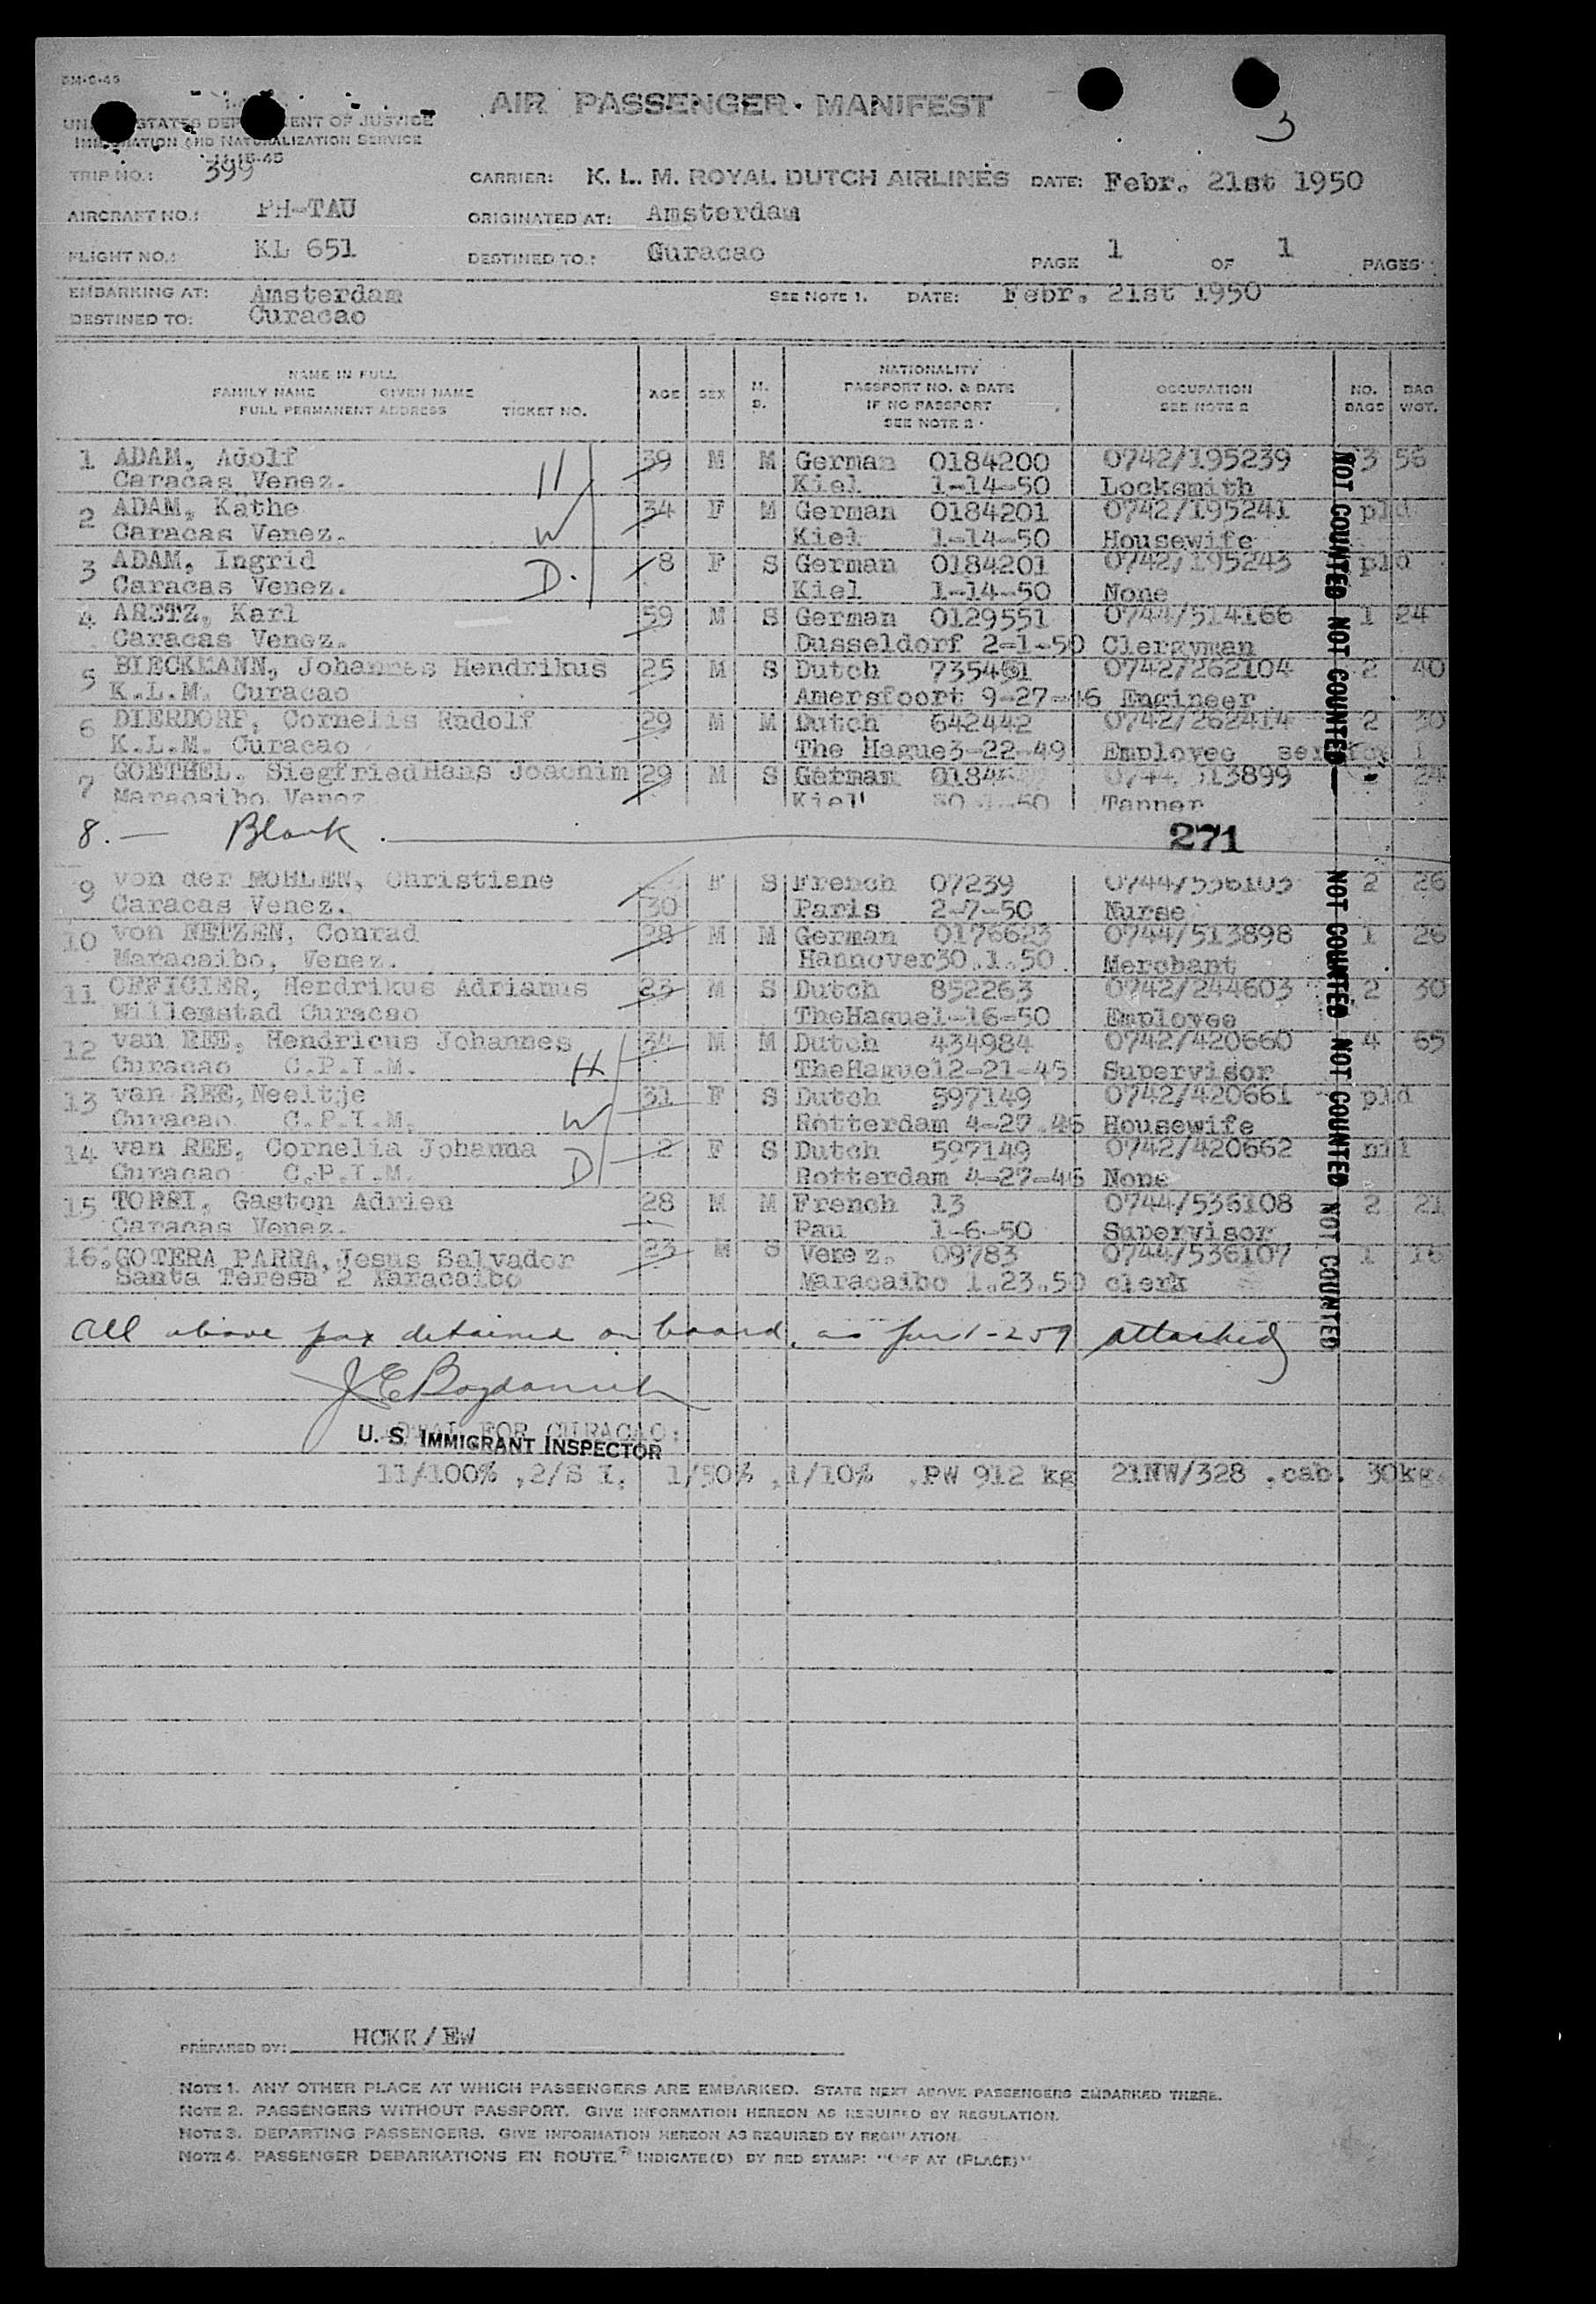 AIR PASSENGER MANIFEST
3
UNITED STATES DEPARTMENT OF JUSTICE
IMMIGRATION AND NATURALIZATION SERVICE
11-15-45
TRIP NO.: 399 CARRIER: K. L. M. ROYAL DUTCH AIRLINES DATE: Febr. 21st 1950
AIRCRAFT NO.: PH-TAU ORIGINATED AT: Amsterdam
FLIGHT NO.: KL 651 DESTINED TO.: Curacao PAGE 1 OF 1 PAGES
EMBARKING AT: Amsterdam SEE NOTE 1. DATE: Febr. 21st 1950
DESTINED TO: Curacao
NAME IN FULL
FAMILY NAME GIVEN NAME
FULL PERMANENT ADDRESS TICKET NO.
AGE SEX M. S.
NATIONALITY
PASSPORT NO. & DATE
IF NO PASSPORT
SEE NOTE 2
OCCUPATION
SEE NOTE 2
NO. BAGS
BAG WGT.
1 ADAM, Adolf H 39 M M German 0184200 0742/195239 3 56
Caracas Venez. Kiel 1-14-50 Locksmith
2 ADAM, Kathe W 34 F M German 0184201 0742/195241 pld
Caracas Venez. Kiel 1-14-50 Housewife
3 ADAM, Ingrid D. 8 F S German 0184201 0742/195243 pld
Caracas Venez. Kiel 1-14-50 None
4 ARETZ, Karl 59 M S German 0129551 0744/514166 1 24
Caracas Venez. Dusseldorf 2-1-50 Clergyman
5 BIECKMANN, Johannes Hendrikus 25 M S Dutch 0742/262104 2 40
K.L.M. Curacao Amersfoort 9-27-46 Engineer
6 DIERDORF, Cornelis Rudolf 29 M M Dutch 642442 0742/262414 2 30
K.L.M. Curacao The Hague 3-22-49 Employee 1
7 GOETHEL. Siegfried Hans Joachim 29 M S German 24
Maracaibo Venez Kiel Tanner
8. — Blank. 271
9 von der MOHLEN, Christiane 30 F S French 07239 2 26
Caracas Venez. Paris 2-7-50 Nurse
10 von NETZEN, Conrad 28 M M German 0176623 0744/513898 1 26
Maracaibo, Venez. Hannover 30.1.50 Merchant
11 OFFICIER, Hendrikus Adrianus 23 M S Dutch 852263 0742/244603 2 30
Willemstad Curacao TheHague 1-16-50 Employee
12 van REE, Hendricus Johannes H 34 M M Dutch 434984 0742/420660 4 65
Curacao C.P.I.M. TheHague 12-21-45 Supervisor
13 van REE, Neeltje W 31 F S Dutch 597149 0742/420661 pld
Curacao C.P.I.M. Rotterdam 4-27.46 Housewife
14 van REE, Cornelia Johanna D 2 F S Dutch 597149 0742/420662 nil
Curacao C.P.I.M. Rotterdam 4-27-46 None
15 TORRI, Gaston Adrien 28 M M French 13 0744/536108 2 21
Caracas Venez. Pau 1-6-50 Supervisor
16. GOTERA PARRA, Jesus Salvador 23 M S Venez. 09783 0744/536107 1 16
Santa Teresa 2 Maracaibo Maracaibo 1.23.50 clerk
NOT COUNTED NOT COUNTED
NOT COUNTED NOT COUNTED NOT COUNTED
All above pax detained on board, as per I-259 attached
J E Bogdanich
FOR CURACAO:
U. S. IMMIGRANT INSPECTOR
11/100% ,2/S I, 1/50% ,1/10% ,PW 912 kg 21NW/328 ,cab. 30kg.
PREPARED BY: HCKK/EW
NOTE 1. ANY OTHER PLACE AT WHICH PASSENGERS ARE EMBARKED. STATE NEXT ABOVE PASSENGERS EMBARKED THERE.
NOTE 2. PASSENGERS WITHOUT PASSPORT. GIVE INFORMATION HEREON AS REQUIRED BY REGULATION.
NOTE 3. DEPARTING PASSENGERS. GIVE INFORMATION HEREON AS REQUIRED BY REGULATION.
NOTE 4. PASSENGER DEBARKATIONS EN ROUTE. INDICATE(D) BY RED STAMP: "OFF AT (PLACE)"